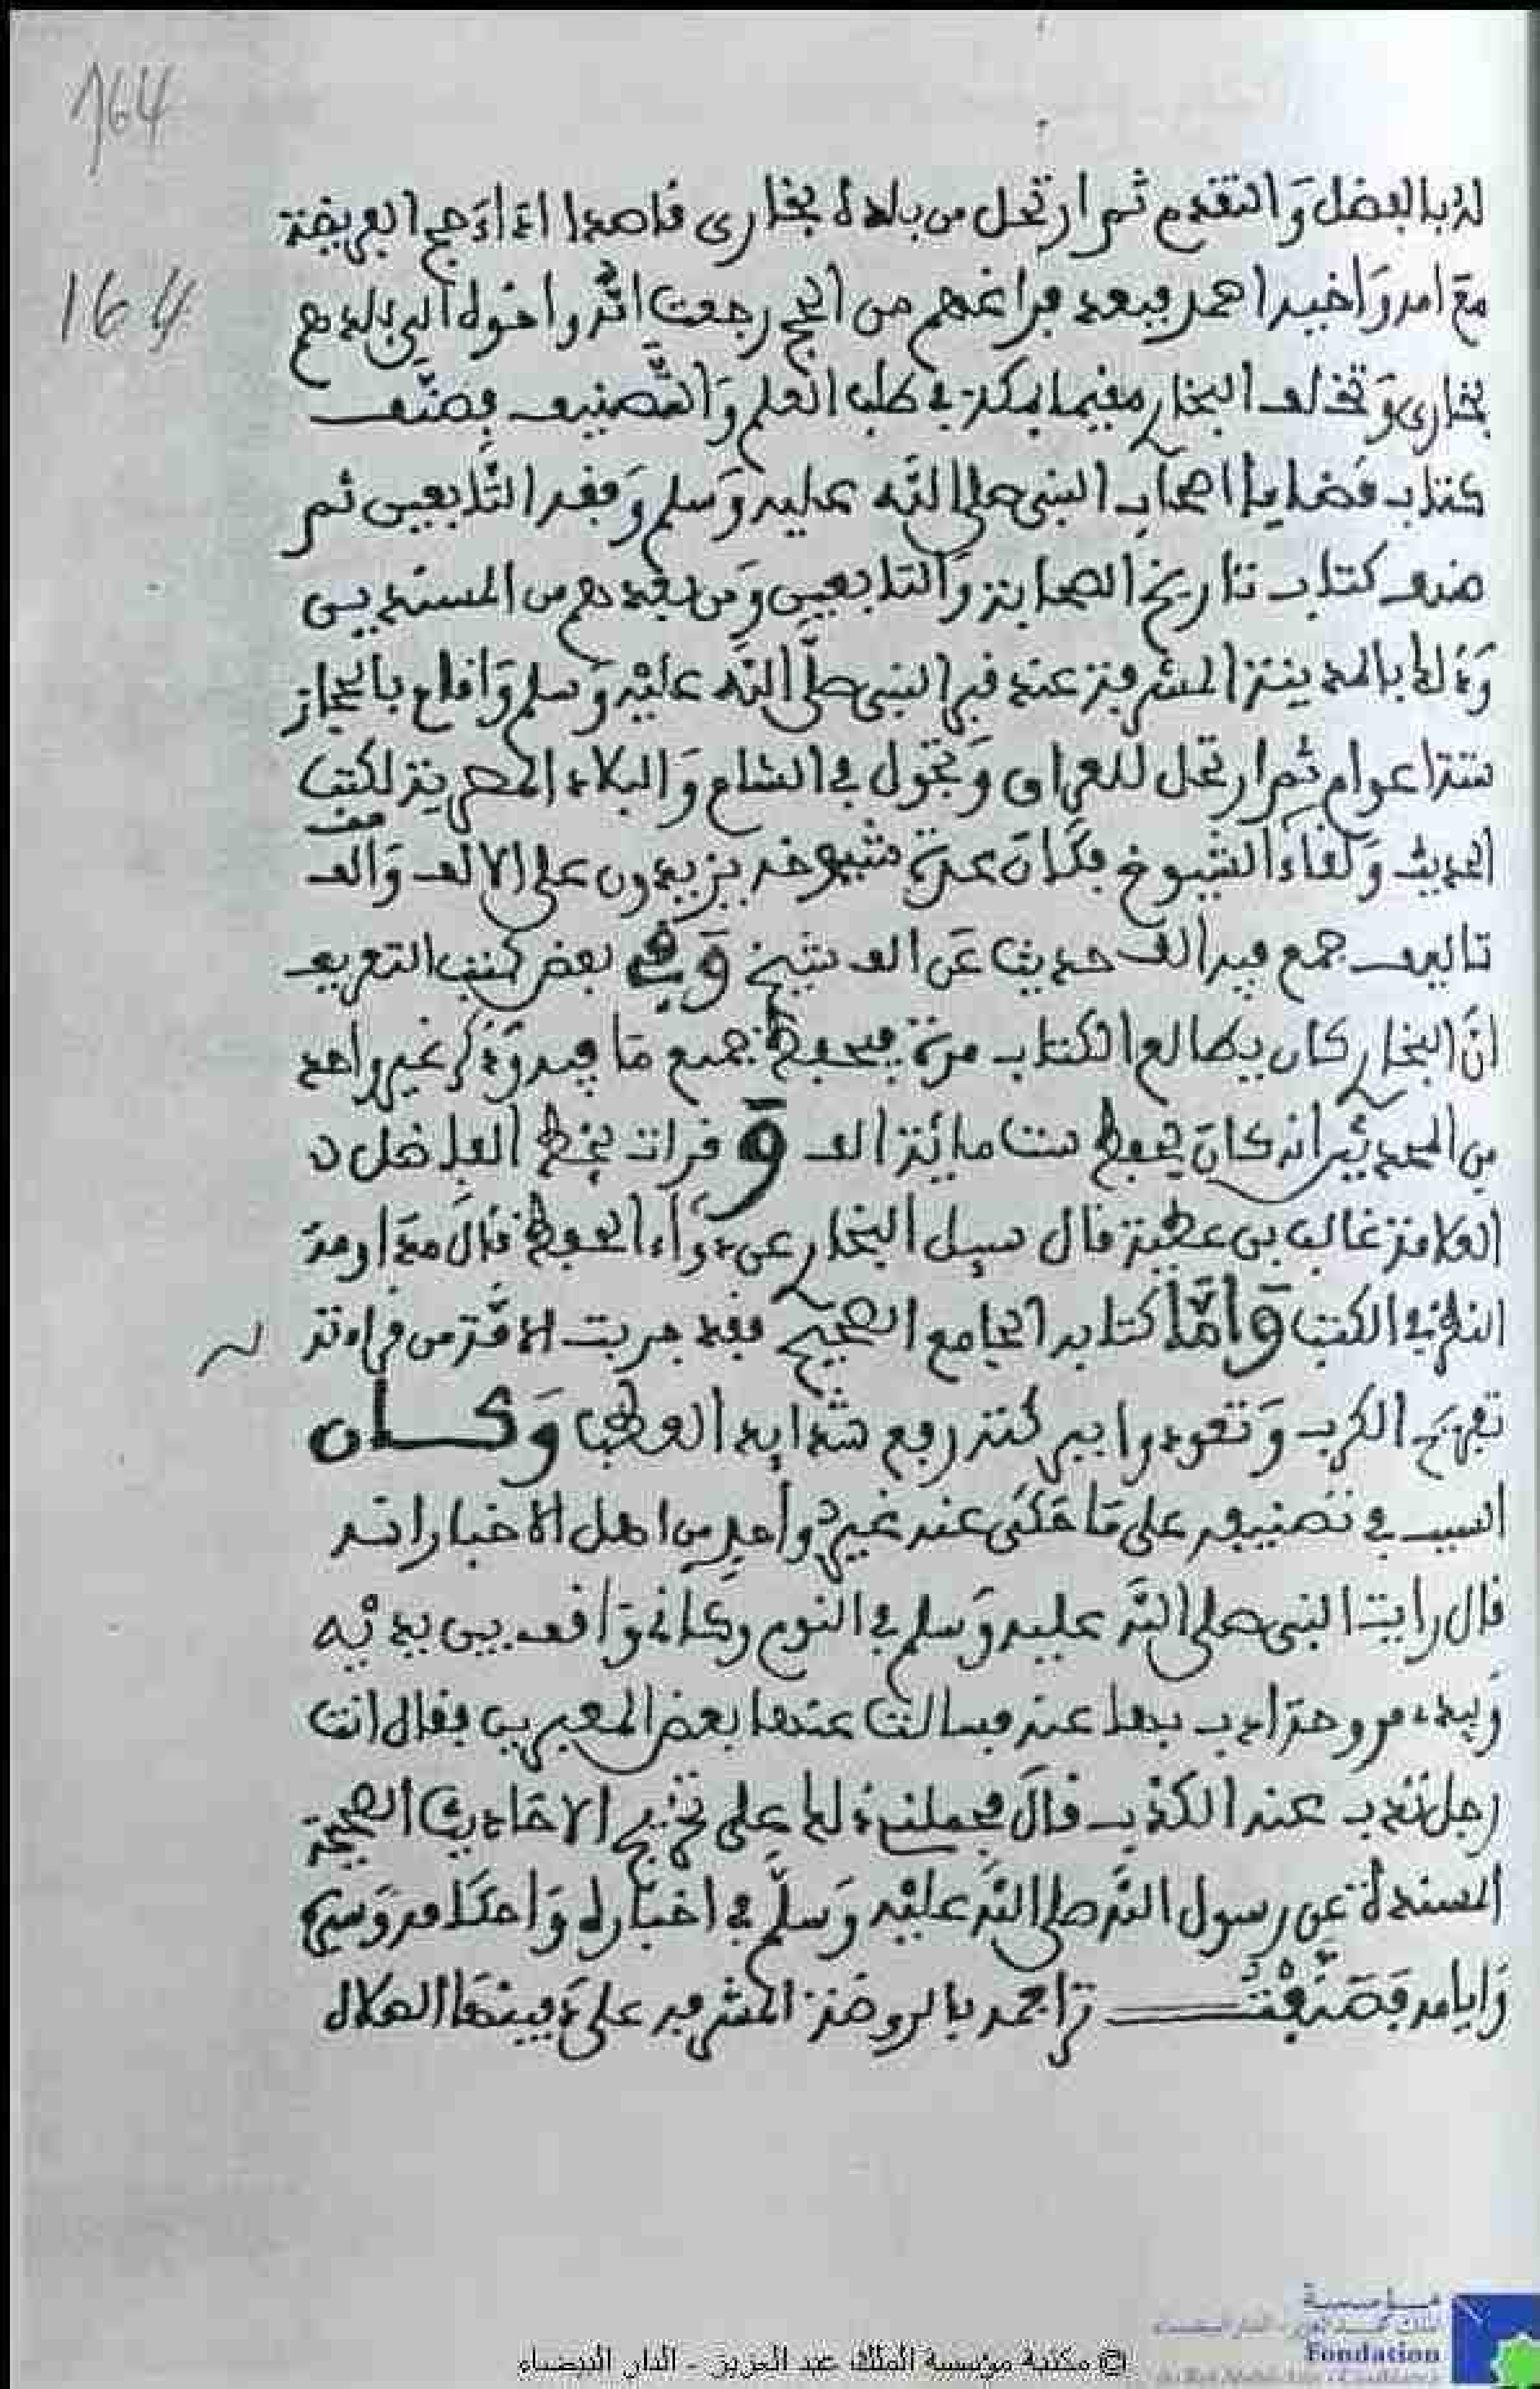 164
164
له بالفضل والتقدم ثم ارتحل من بلاده بخارى قاصدا اداء حج الفريضة
مع امه واخيه احمد فبعد فراغهم من الحج رجعت امه واخوه الى بلدهم
بخارى وتخلف البخاري مقيما بمكة في طلب العلم والتصنيف فصنف
كتاب قضايا اصحاب النبي صلى الله عليه وسلم وفقه التابعين ثم
صنف كتاب تاريخ الصحابة والتابعين ومن بعدهم من المسندين
وذلك بالمدينة المشرفة عند قبر النبي صلى الله عليه وسلم واقام بالحجاز
ستة اعوام ثم ارتحل للعراق وتجول في الشام والبلاد المصرية لكتب
الحديث ولقاء الشيوخ فكان عدة شيوخه يزيدون على الالف والف
تاليف جمع فيه الف حديث عن الف شيخ وفي بعض كتب التعريف
ان البخاري كان يطالع الكتاب مرة فيحفظ جميع ما فيه وذكر غير واحد
من المحدثين انه كان يحفظ ست مائة الف وقرات بخط الفاضل
العلامة غالب بن عطية قال سيل البخاري عن دواء الحفظ قال مداومة
النظر في الكتب واما كتابه الجامع الصحيح فقد جربت الامة من قراءته
تفريج الكرب وتعودوا ببركته رفع شدايد العطب وكان
السبب في تصنيفه على ما حكى عنه غير واحد من اهل الاخبار انه
قال رايت النبي صلى الله عليه وسلم في النوم وكاني واقف بين يديه
وبيده مروحة اذب بها عنه فسالت عنها بعض المعبرين فقال انت
رجل تذب عنه الكذب قال فحملني ذلك على تخريج الاحاديث الصحيحة
المسندة عن رسول الله صلى الله عليه وسلم في اخباره واحكامه وسيره
وايامه فصنفت تراجمه بالروضة المشرفة على دفينها الصلاة
© مكتبة مؤسسة الملك عبد العزيز - الدار البيضاء
Fondation